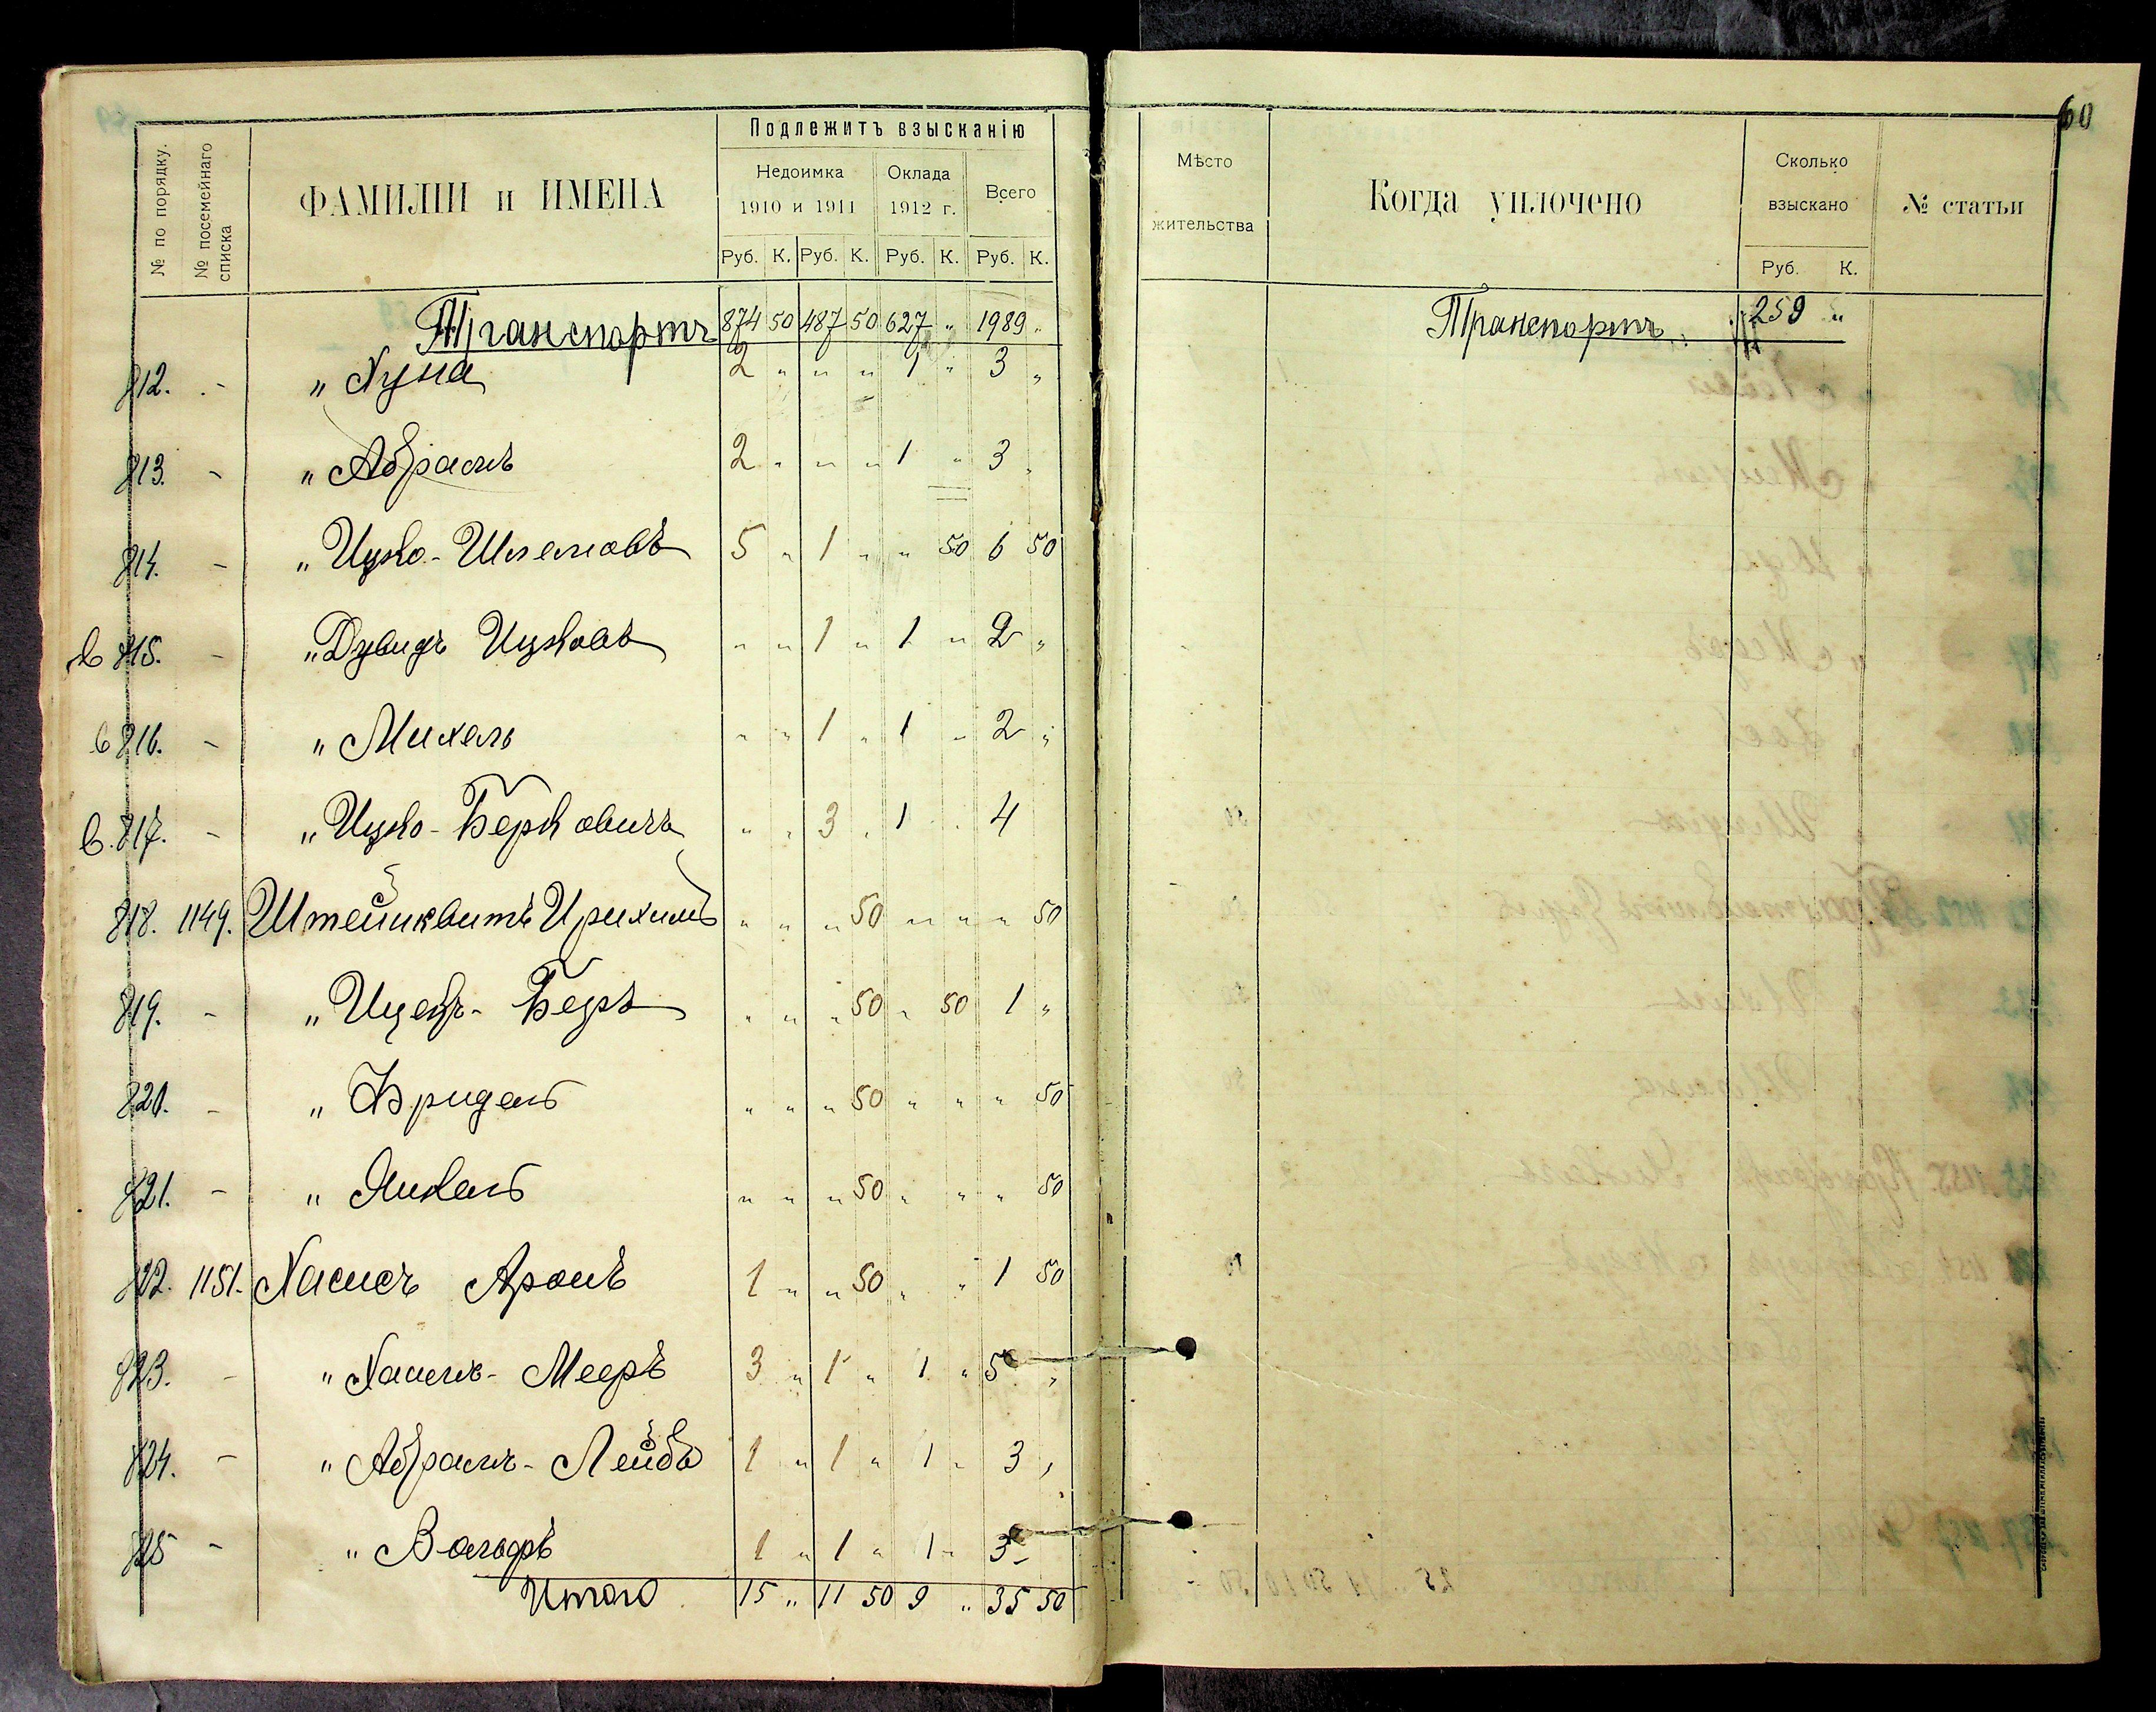 60
№ по порядку.
№ посемейнаго списка
ФАМИЛІИ и ИМЕНА
Подлежитъ взысканію
Недоимка
1910 и 1911
Оклада
1912 г.
Всего
Руб. К. Руб. К. Руб. К. Руб. К.
Мѣсто
жительства
Когда уплочено
Сколько
взыскано
Руб. К.
№ статьи
Транспортъ 874 50 487 50 627 " 1989 "
Транспортъ 259 "
812. - " Хуна 2 " " " 1 " 3 "
813. - " Абрамъ 2 " " " 1 " 3 "
814. - " Ицко-Шлемовъ 5 " 1 " " 50 6 50
в 815. - " Дувидъ Ицковъ " " 1 " 1 " 2 "
в 816. - " Михель " " 1 " 1 " 2 "
в. 817. - " Ицко-Берковичъ " " 3 " 1 " 4
818. 1149. Штейнквитъ Ирихимъ " " " 50 " " " 50
819. - " Ицекъ-Беръ " " " 50 " 50 1 "
820. - " Фридель " " " 50 " " " 50
821. - " Янкель " " " 50 " " " 50
822. 1151. Хасисъ Аронъ 1 " " 50 " " 1 50
823. - " Хаимъ-Мееръ 3 " 1 " 1 " 5 "
824. - " Абрамъ-Лейба 1 " 1 " 1 " 3 "
825 - " Вольфъ 1 " 1 " 1 " 3 -
Итого 15 " 11 50 9 " 35 50